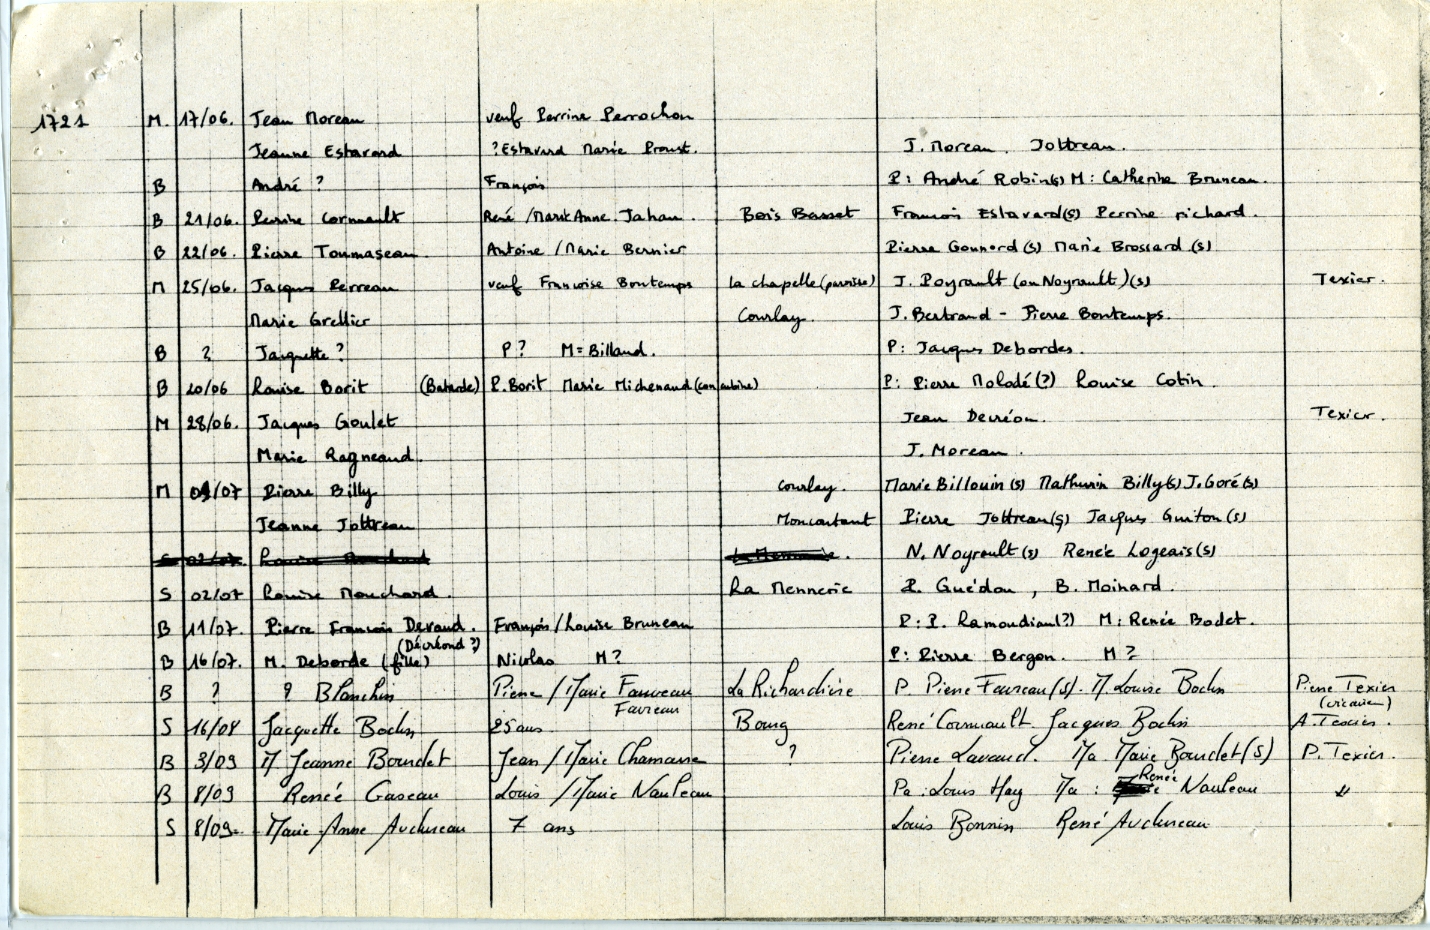 1721 M. 17/06. Jean Moreau veuf Perrine Perrochon
Jeanne Estavard ?Estavard Marie Proust. J. Moreau. Jottreau.
B André ? François P: André Robin(s) M: Catherine Bruneau.
B 21/06. Perrine Cornuault René /Marie Anne Jahan. Bois Basset François Estavard(s) Perrine richard.
B 22/06. Pierre Toumaseau. Antoine /Marie Bernier Pierre Gonnord (s) Marie Brossard (s)
M 25/06. Jacques Perreau veuf Françoise Bontemps La chapelle (paroisse) J. Poyrault (ou Noyrault) (s) Texier.
Marie Grellier Courlay. J. Bertrand - Pierre Bontemps.
B ? Jacquette ? P? M = Billaud. P: Jacques Debordes.
B 20/06 Louise Borit (Batarde) P. Borit Marie Michenaud (concubine) P: Pierre Molodé (?) Louise Cotin.
M 28/06. Jacques Goulet Jean Decréon. Texier.
Marie Ragneaud. J. Moreau.
M 01/07 Pierre Billy Courlay. Marie Billouin (s) Mathurin Billy(s) J. Goré (s)
Jeanne Jottreau Moncoutant Pierre Jottreau(s) Jacques Guiton (s)
S 02/07. N. Noyrault (s) Renée Logeais (s)
S 02/07 Louise Mouchard. La Mennerie P. Guédon , B. Moinard.
B 11/07. Pierre François Devaud. François / Louise Bruneau P: P. Ramoudiau(?) M: Renée Bodet.
(Décréond ?)
B 16/07. M. Deborde (fille) Nicolas M? P: Pierre Bergon. M ?
B ? ? Blanchin Pierre / Marie Fauveau La Richardière P. Pierre Favreau (s). M. Louise Bodin Pierre Texier
Favreau (vicaire)
S 16/08 Jacquette Bodin 25 ans Bourg René Cornuault. Jacques Bodin A. Texier.
B 3/09 M Jeanne Boudet Jean / Marie Chamarre ? Pierre Lavaud. Ma Marie Boudet (S) P. Texier.
B 8/09 Renée Gaseau Louis / Marie Nauleau Pa : Louis Hay Ma : Renée Nauleau "
S 8/09. Marie-Anne Audureau 7 ans Louis Bonnin René Audureau